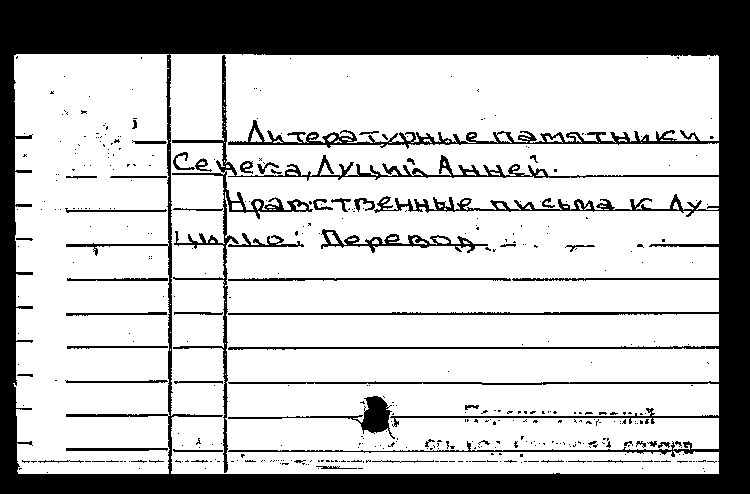 Литературные памятники.
Сенека, Луций Анней.
Нравственные письма к Лу-
цилию: Перевод
под фамилией автора